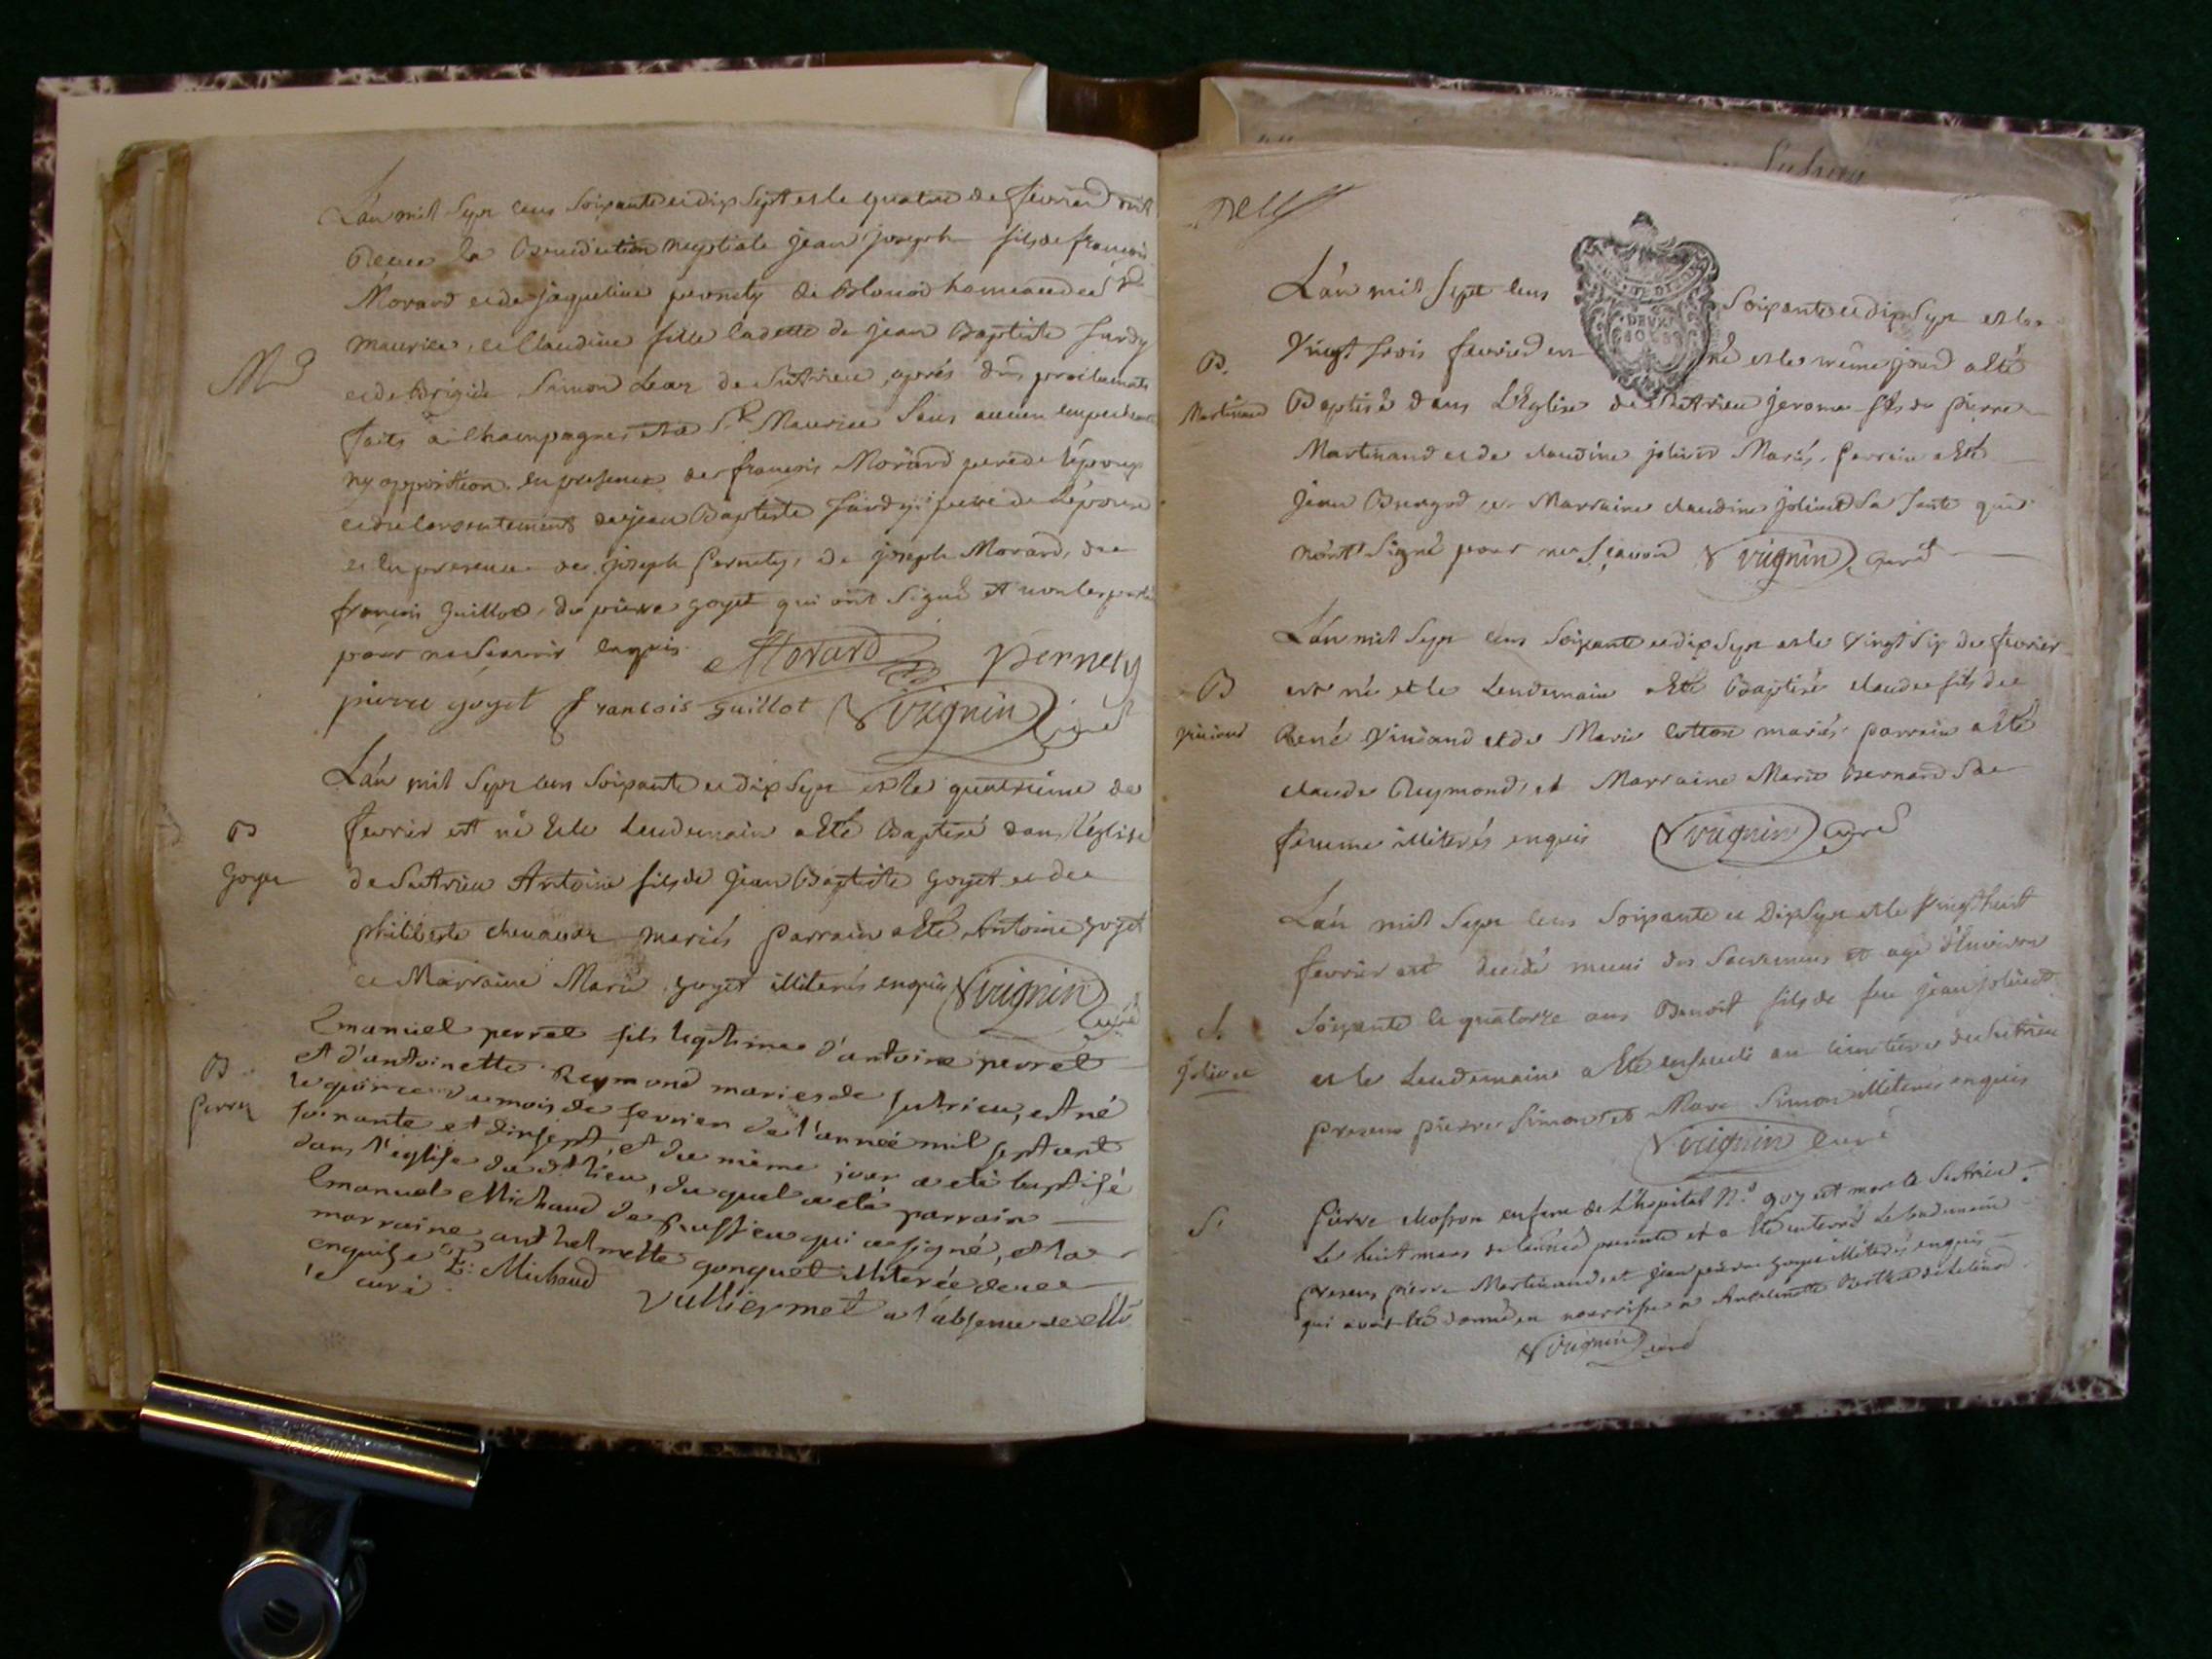 L'an mil Sept cens Soixante et dix Sept et le quatre de fevrier ont
Recue la Benediction nuptiale jean joseph fils de françois
Morard et de jaqueline pernety de Blanod hameau de St
Maurice, et Claudine fille cadette de jean Baptiste Jurdy
et de Brigide Simon Leaz de Sutrieu, aprés dûs proclamats
faits à Champagne et a St Maurice Sans aucun empechement
ny opposition, en presence de françois Morard pere de l'époux
et du consentement de jean Baptiste Jurdy pere de L'épouse
et en presence de joseph Pernety, de joseph Morard, de
françois Guillot, de pierre goyet qui ont Signé et non les parties
pour ne Scavoir enquis. Morard Pernety
pierre goyet francois guillot Vuignin Curé
M
L'an mil Sept cens Soixante et dix Sept et le quatrieme de
fevrier est né et le Lendemain a Eté Baptisé dans l'église
de Sutrieu Antoine fils de Jean Baptiste Goyet et de
philiberte mariés Parrain a Eté Antoine goyet
et Marraine Marie goyet illiterés enquis Vuignin Curé
B
Goyet
Emanuel perret fils legitime d'antoine perret
et d'antoinette Reymond mariés de Sutrieu, est né
le quinze du mois de fevrier de l'année mil sept cent
soixante et dix sept, et du même jour a eté baptisé
dans l'église du dt lieu, du quel a eté parrain
Emanuel Michaud de Ruffieu qui a signé, et la
marraine anthelmette gonguet illiterée de ce
enquise E: Michaud
Vulliermet a l'absence de Mr
le curé
B
Perret
L'an mil Sept cens Soixante et dix Sept et le
Vingt trois fevrier est né et le même jour a Eté
Baptisé dans L'Eglise de Sutrieu Jerome fils de Pierre
Martinand et de claudine jolivet Mariés. Parrain a Eté
Jean et Marraine claudine Jolivet Sa Tante qui
n'ont Signé pour ne Sçavoir Vuignin Curé
DEUX SOLS
B.
Martinand
L'an mil Sept cens Soixante et dix Sept et le Vingt Six de fevrier
est né et le Lendemain a Eté Baptisé claude fils de
René Vinciand et de Marie mariés parrain a Eté
claude Reymond, et Marraine Marie Bernard Sa
femme illiterés enquis Vuignin Curé
B
Vinciand
L'an mil Sept cens Soixante et Dix Sept et le Vingt huit
fevrier est decedé muni des Sacremens et agé d'Environ
Soixante et quatorze ans Benoit fils de feu jean jolivet
et le Lendemain a Eté enseveli au cimetiere de Sutrieu
presens pierre Simon et Marc Simon illiterés enquis
Vuignin Curé
S.
Jolivet
Pierre Mosson enfant de L'hopital N.o 907 est mort a Sutrieu
Le huit mars de L'année presente et a Eté enterré Le Lendemain
presens pierre Martinand et jean pierre goyet illiterés enquis
qui avoit Eté donné en nourrisse a Antoinette
Vuignin Curé
S.